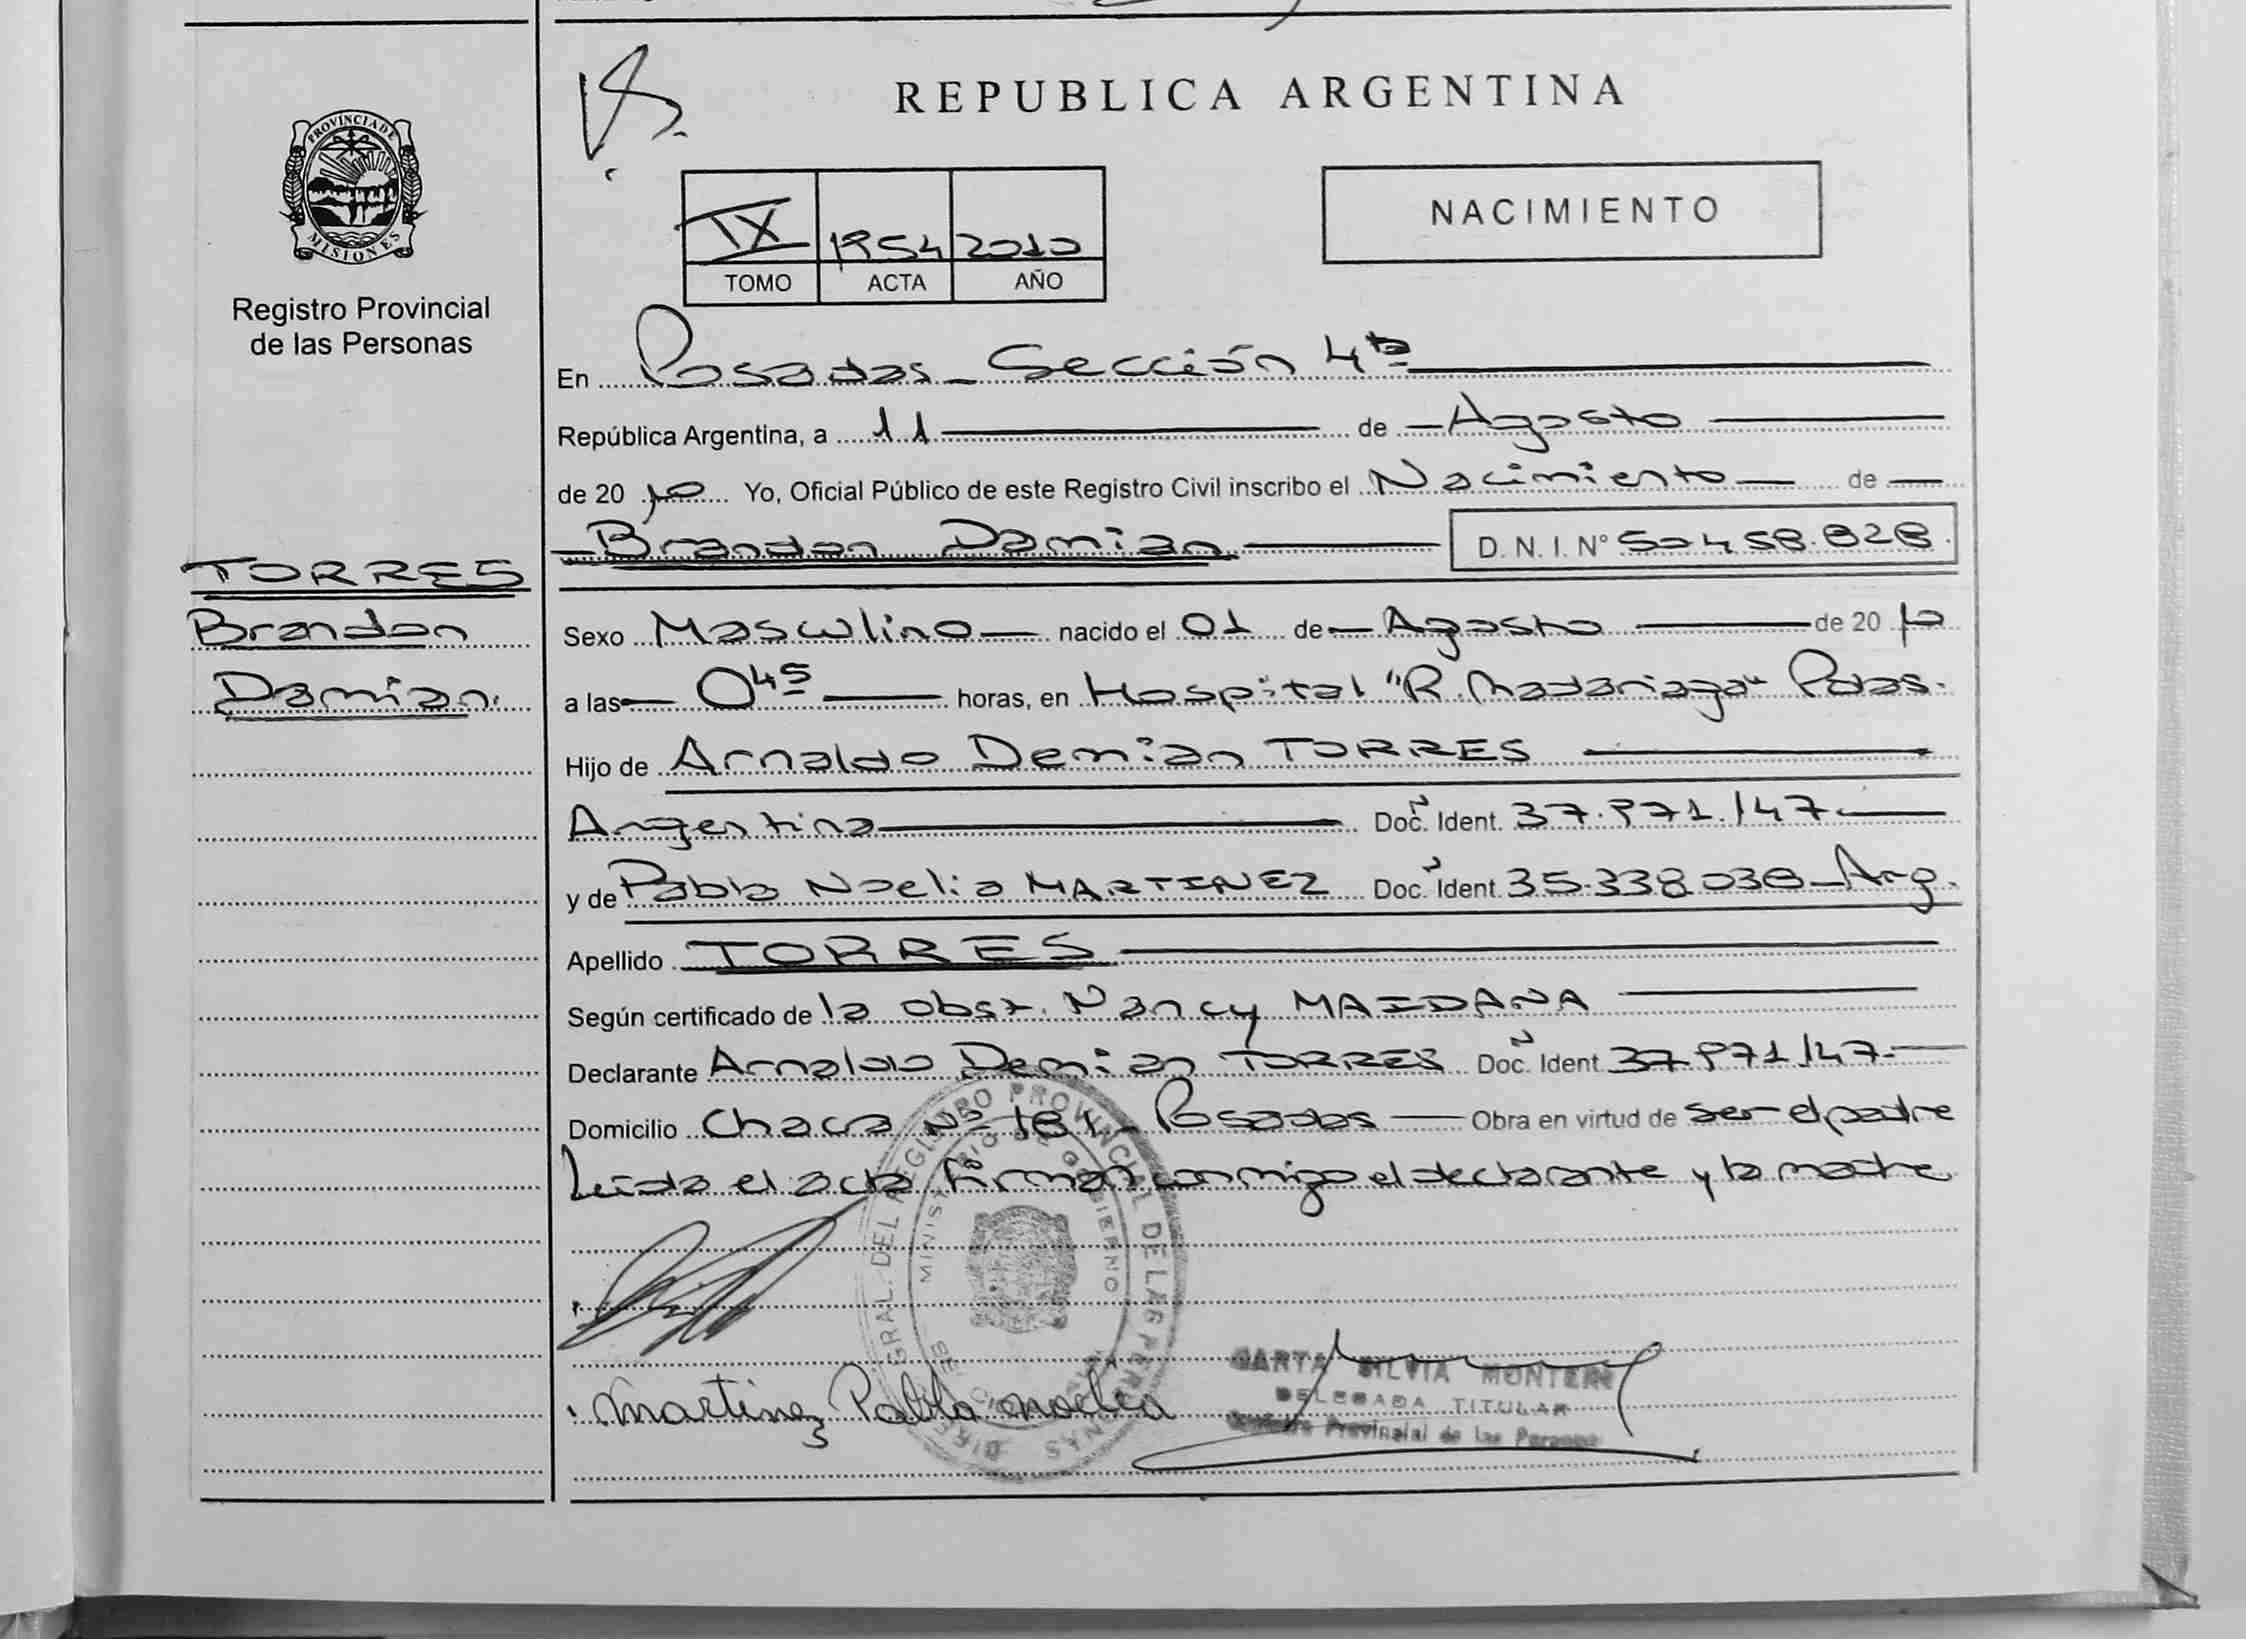 PROVINCIA DE
MISIONES
Registro Provincial
de las Personas
TORRES
Brandon
Damian.
REPUBLICA ARGENTINA
NACIMIENTO
IX 1954 2010
TOMO ACTA AÑO
En Posadas - Sección 4ta
República Argentina, a 11 de Agosto
de 2010 Yo, Oficial Público de este Registro Civil inscribo el Nacimiento de
Brandon Damian D. N. I. N° 50458.828.
Sexo Masculino nacido el 01 de Agosto de 2010
a las 0 45 horas, en Hospital "R. Madariaga" Pdas.
Hijo de Arnaldo Demian TORRES
Argentina Doc. Ident. 37.971.147
y de Pabla Noelia MARTINEZ Doc. Ident. 35.338.038 - Arg.
Apellido TORRES
Según certificado de la obst. Nancy MAIDANA
Declarante Arnaldo Demian TORRES Doc. Ident. 37.971.147-
Domicilio Chacra Nº 181 - Posadas Obra en virtud de ser el padre
Leída el acta firman conmigo el declarante y la madre
MINISTERIO DE GOBIERNO
Martinez Pabla Noelia
SILVIA
DELEGADA TITULAR
Provincial de las Personas